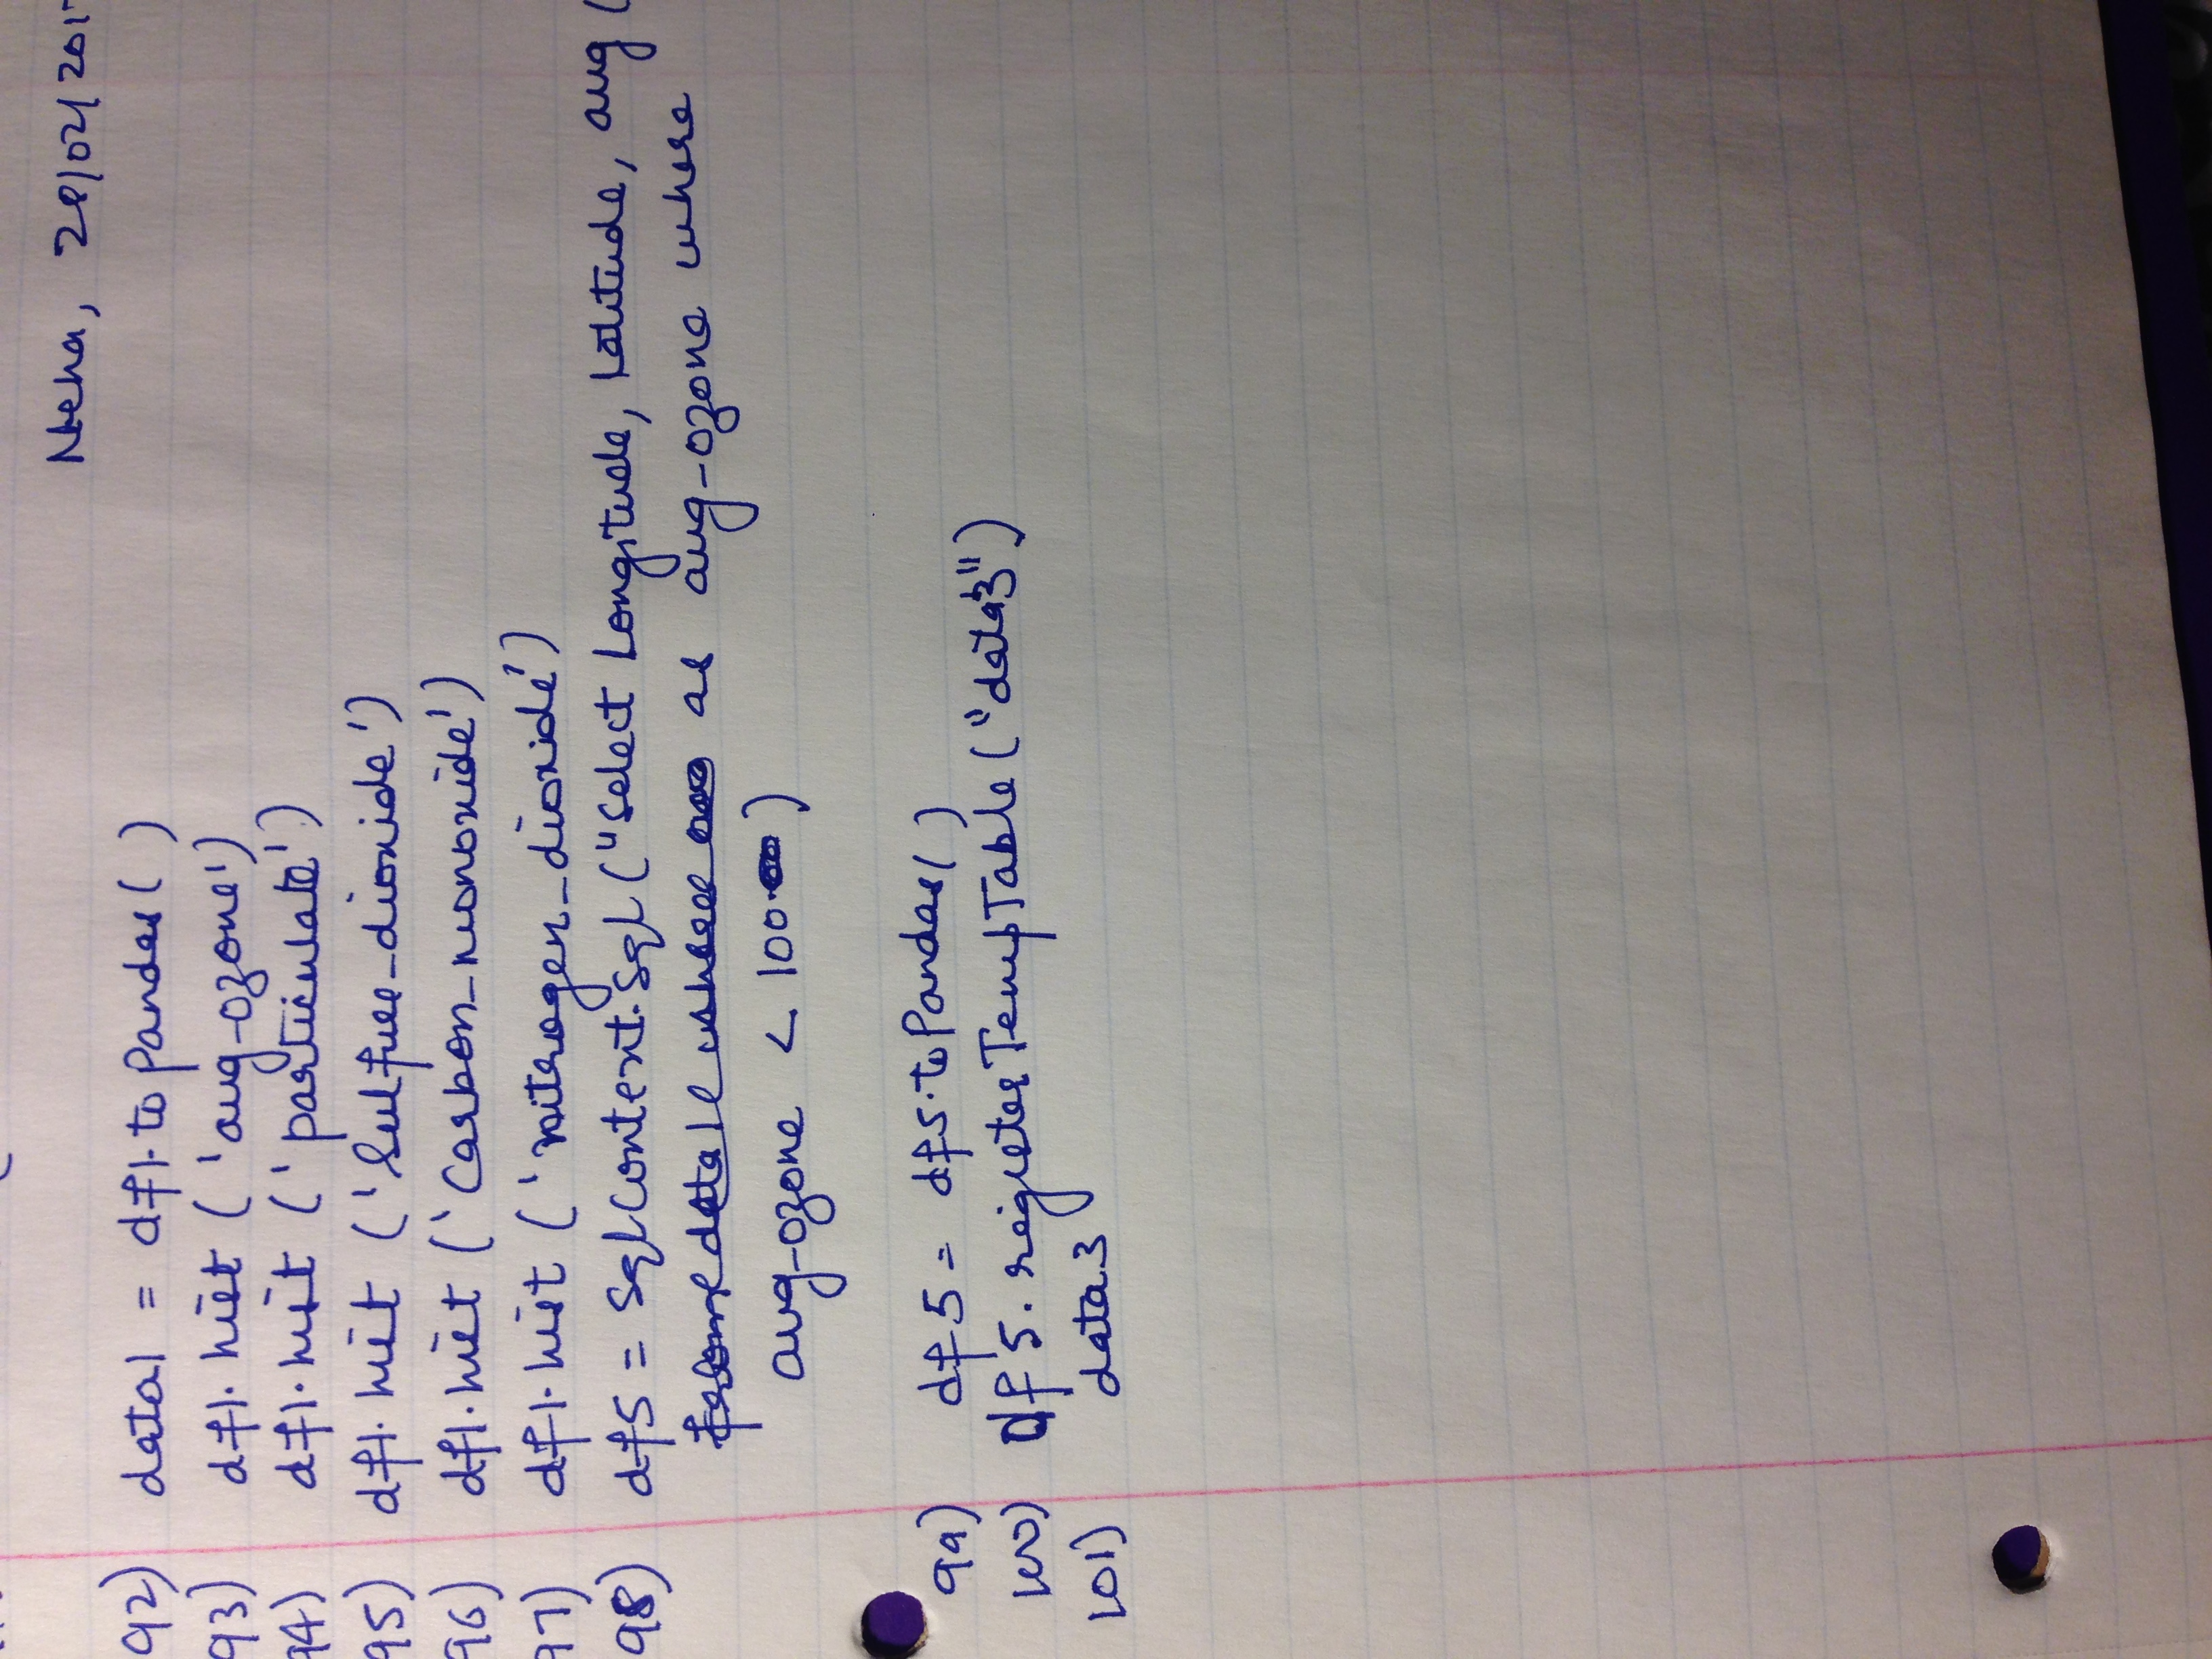 Neha, 28/02/201
92) data1 = df1.toPandas( )
93) df1.hist ('avg_ozone')
94) df1.hist ('particulate')
95) df1.hist ('Sulfure_dioxide')
96) df1.hist ('Carbon_monoxide')
97) df1.hist ('nitrogen_dioxide')
98) df5 = SqlContext.Sql ("Select Longitude, Latitude, avg (
as avg_ozone where
avg_ozone < 100 )
99) df5 = df5.toPandas( )
100) df5.registerTempTable ("data3")
101) data3